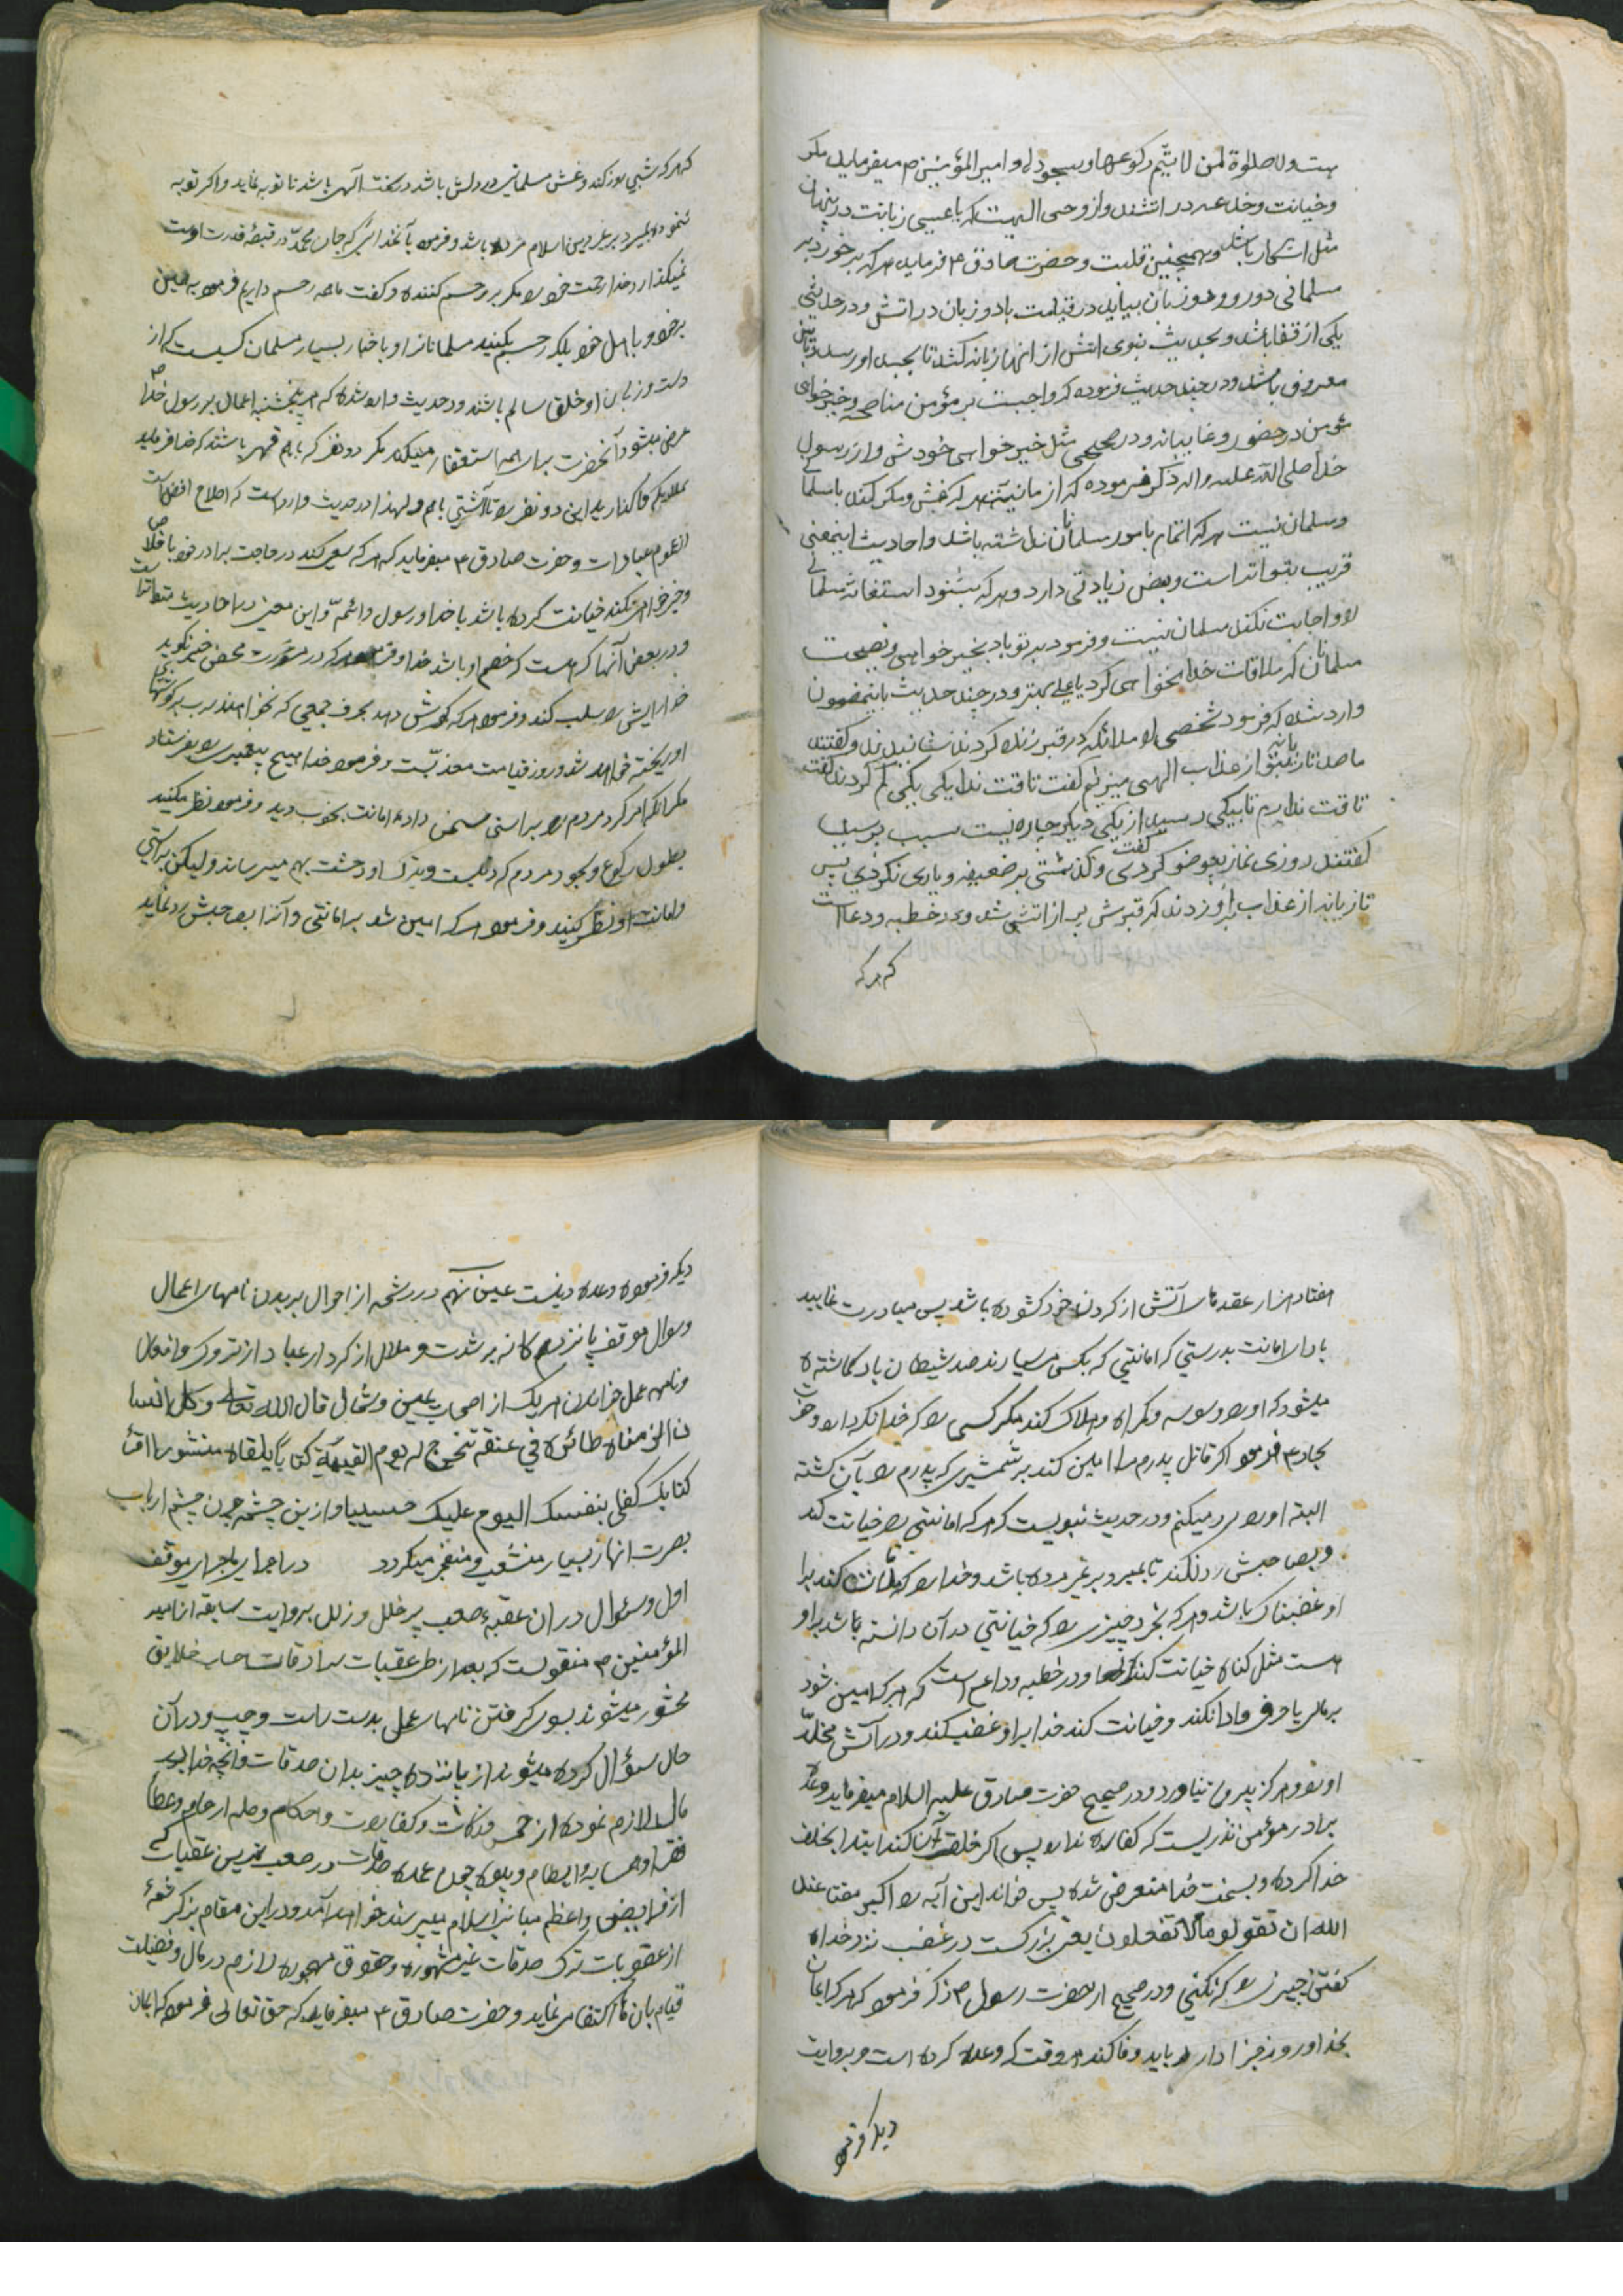 ست ولا صلوة لمن لا يتم ركوعها وسجوده وامير المؤمنين م ميفرمايد مكر
وخيانت وخدعه در اتشند واز وحى الهيست كه با عيسى زبانت در پنهان
مثل اشكار باشد وهمچنين قلبت وحضرت صادق ع فرمايد هر كه بر خورد بر
مسلمانى دو رو ودو زبان بيايد در قيامت باد و زبان در اتش ودر حديثى
يكى از قفا باشد وبحديث نبوى اتش از انها زبانه كشد تا بجسد او رسد
معروف باشد ودر چند حديث فرموده كه واجبست بر مؤمن مناصحه وخير خواهى
مؤمن در حضور وغايبانه ودر صحيحى مثل خير خواهى خودش واز رسول
خدا صلى الله عليه واله ذكر فرموده كه از ما نيست هر كه غش ومكر كند با مسلمانى
ومسلمان نيست هر كه اتمام بامور مسلمانان نداشته باشد واحاديث اينمعنى
قريب بتواتر است وبعض زيادتى دارد وهر كه بشنود استغاثه مسلمانى
را واجابت نكند مسلمان نيست وفرمود بر تو باد بخير خواهى ونصيحت
مسلمانان كه ملاقات خدا نخواهى كرد با عملى بهتر ودر چند حديث باينمضمون
وارد شده كه فرمود شخصى را ملائكه در قبر زنده كردند نشانيدند وگفتند
ما صد تازيانه بتو از عذاب الهى ميزنيم گفت تاقت ندارم يكى يكى كم كردند گفت
تاقت ندارم تا بيكى رسيد از يكى ديكر چاره نيست سبب پرسيد
گفتند روزى نماز بى وضو كردى وگذشتى بر ضعيفه ويارى نكردى پس
تازيانه از عذاب بر او زدند كه قبرش پر از اتش شد ودر خطبه وداعست
كه هر كه
كه هر كه شبى روز كند وغش مسلمانى در دلش باشد در سخت الهى باشد تا توبه نمايد واكر توبه
ننموده بميرد بر غير دين اسلام مرده باشد وفرمود بآنخدائيكه جان محمد در قبضه قدرت اوست
نميكذارد خدا رحمت خود را مكر بر رحم كننده وگفت ما همه رحم داريم فرمود به همين
بر خود وباهل خود بلكه رحم بكنيد مسلمانانرا وباخبار بسيار مسلمان كسيست كه از
دست وزبان او خلق سالم باشند ودر حديث وارد شده كه هر پنجشنبه اعمال بر رسول خدا ص
عرض ميشود وآنحضرت براى همه استغفار ميكند مكر دو نفر كه با هم قهر باشند كه خدا فرمايد
بملايكه واكذاريد اين دو نفر را تا آشتى باهم ولهذا در حديث وارد است كه اصلاح افضل است
از عموم عبادات وحضرت صادق ع ميفرمايد كه هر كه سعى كند در حاجت برادر خود باخلاص
وخير خواهى نكند خيانت كرده باشد با خدا ورسول وائمه واين معنى را احاديث
ودر بعض آنها كه هست كه خصم او باشد خدا وفرمود هر كه در مشورت محض خير نكويد
خدا رايش را سلب كند وفرمود هر كه كوش دهد بحرف جمعى كه نخواهند سرب بر كوشهاى
او ريخته خواهد شد وروز قيامت معذبست وفرمود خدا هيچ پيغمبرى را نفرستاد
مكر آنكه امر كرد مردم را براستى سخن واداى امانت بخوب وبد وفرمود نظر مكنيد
بطول ركوع وسجود مردم كه بلكه او وحشت بهم ميرساند وليكن براستى
وامانت او نظر كنيد وفرمود هر كه امين شد بر امانتى وآنرا بصاحبش رد نمايد
هفتاد هزار عقدهاى آتش از كردن خود كشوده باشد پس مبادرت نماييد
باداى امانت بدرستى كه امانتى كه بكسى ميسپارند صد شيطان باو كماشته
ميشود كه او را وسوسه وكمراه وهلاك كند مكر كسى را كه خدا نكهدارد وحضرت
سجاد ع فرمود اكر قاتل پدرم مرا امين كند بر شمشيرى كه پدرم را بآن كشته
البته او را رد ميكنم ودر حديث نبويست كه هر كه امانتى را خيانت كند
وبصاحبش رد نكند تا بميرد بر غير مرده باشد وخدا را كه ملاقات كند بر
او غضبناك باشد وهر كه بخرد چيزى را كه خيانتى در آن دانسته باشد بر او
هست مثل كناه خيانت كننده ودر خطبه وداعست كه هر كه امين شود
بر مالى يا حرفى وادا نكند وخيانت كند خدا بر او غضب كند ودر آتش مخلد
او بود وهركز بيرون نياورد ودر صحيح حضرت صادق عليه السلام ميفرمايد وعده
برادر مؤمن نذريست كه كفاره ندارد پس اكر خلف آن كند ابتدا بخلف
خدا كرده وبسخت خدا متعرض شده پس خواند اين آيه را كبر مقتا عند
الله ان تقولوا ما لا تفعلون يعنى بزركست در غضب نزد خدا
كفتن چيزى را كه نكنى ودر صحيح از حضرت رسول ص ذكر فرمود كه هر كه ايمان
بخدا وروز جزا دارد بايد وفا كند هر وقت كه وعده كرده است وبروايت
ديكر فرموده
ديكر فرموده وعده دينست عين نهم در رشحه از احوال پريدن نامهاى اعمال
وسؤال موقف پانزده كانه پر شدت وملال از كردار عباد از تروك وافعال
ونامه عمل خواندن هر يك از اصحاب يمين وشمال قال الله تعالى وكل انسا
ن الزمناه طائره في عنقه ونخرج له يوم القيمة كتابا يلقاه منشورا اقرأ
كتابك كفى بنفسك اليوم عليك حسيبا وازين چشمه چون چشم ارباب
بصرت انهار بسيار منشعب ومنفجر ميكردد در اجراى ماجراى موقف
اول وسئوال در ان عقبه صعب پر خلل وزلل بروايت سابقه از امير
المؤمنين م منقولست كه بعد از طى عقبات سرادقات حساب خلايق
محشور ميشوند بسوى كرفتن نامهاى عمل بدست راست وچپ ودر آن
حال سؤال كرده ميشوند از پانزده چيز بدان صدقات وآنچه خدا در
مال لازم نموده از خمس وزكات وكفارات واحكام وصله ارحام وعطاى
فقرا وهمسايه وايتام وبيوه چون عمده صدقات در صعبترين عقبات كه
از فرايض واعظم مبانى اسلام ميپرسند خواهد آمد ودر اين مقام بذكر شمه
از عقوبات ترك صدقات غير مشهوره وحقوق مهجوره لازم در مال وفضيلت
قيام بآن ها اكتفا مى نمايد وحضرت صادق ع ميفرمايد كه حق تعالى فرموده كه ايمان